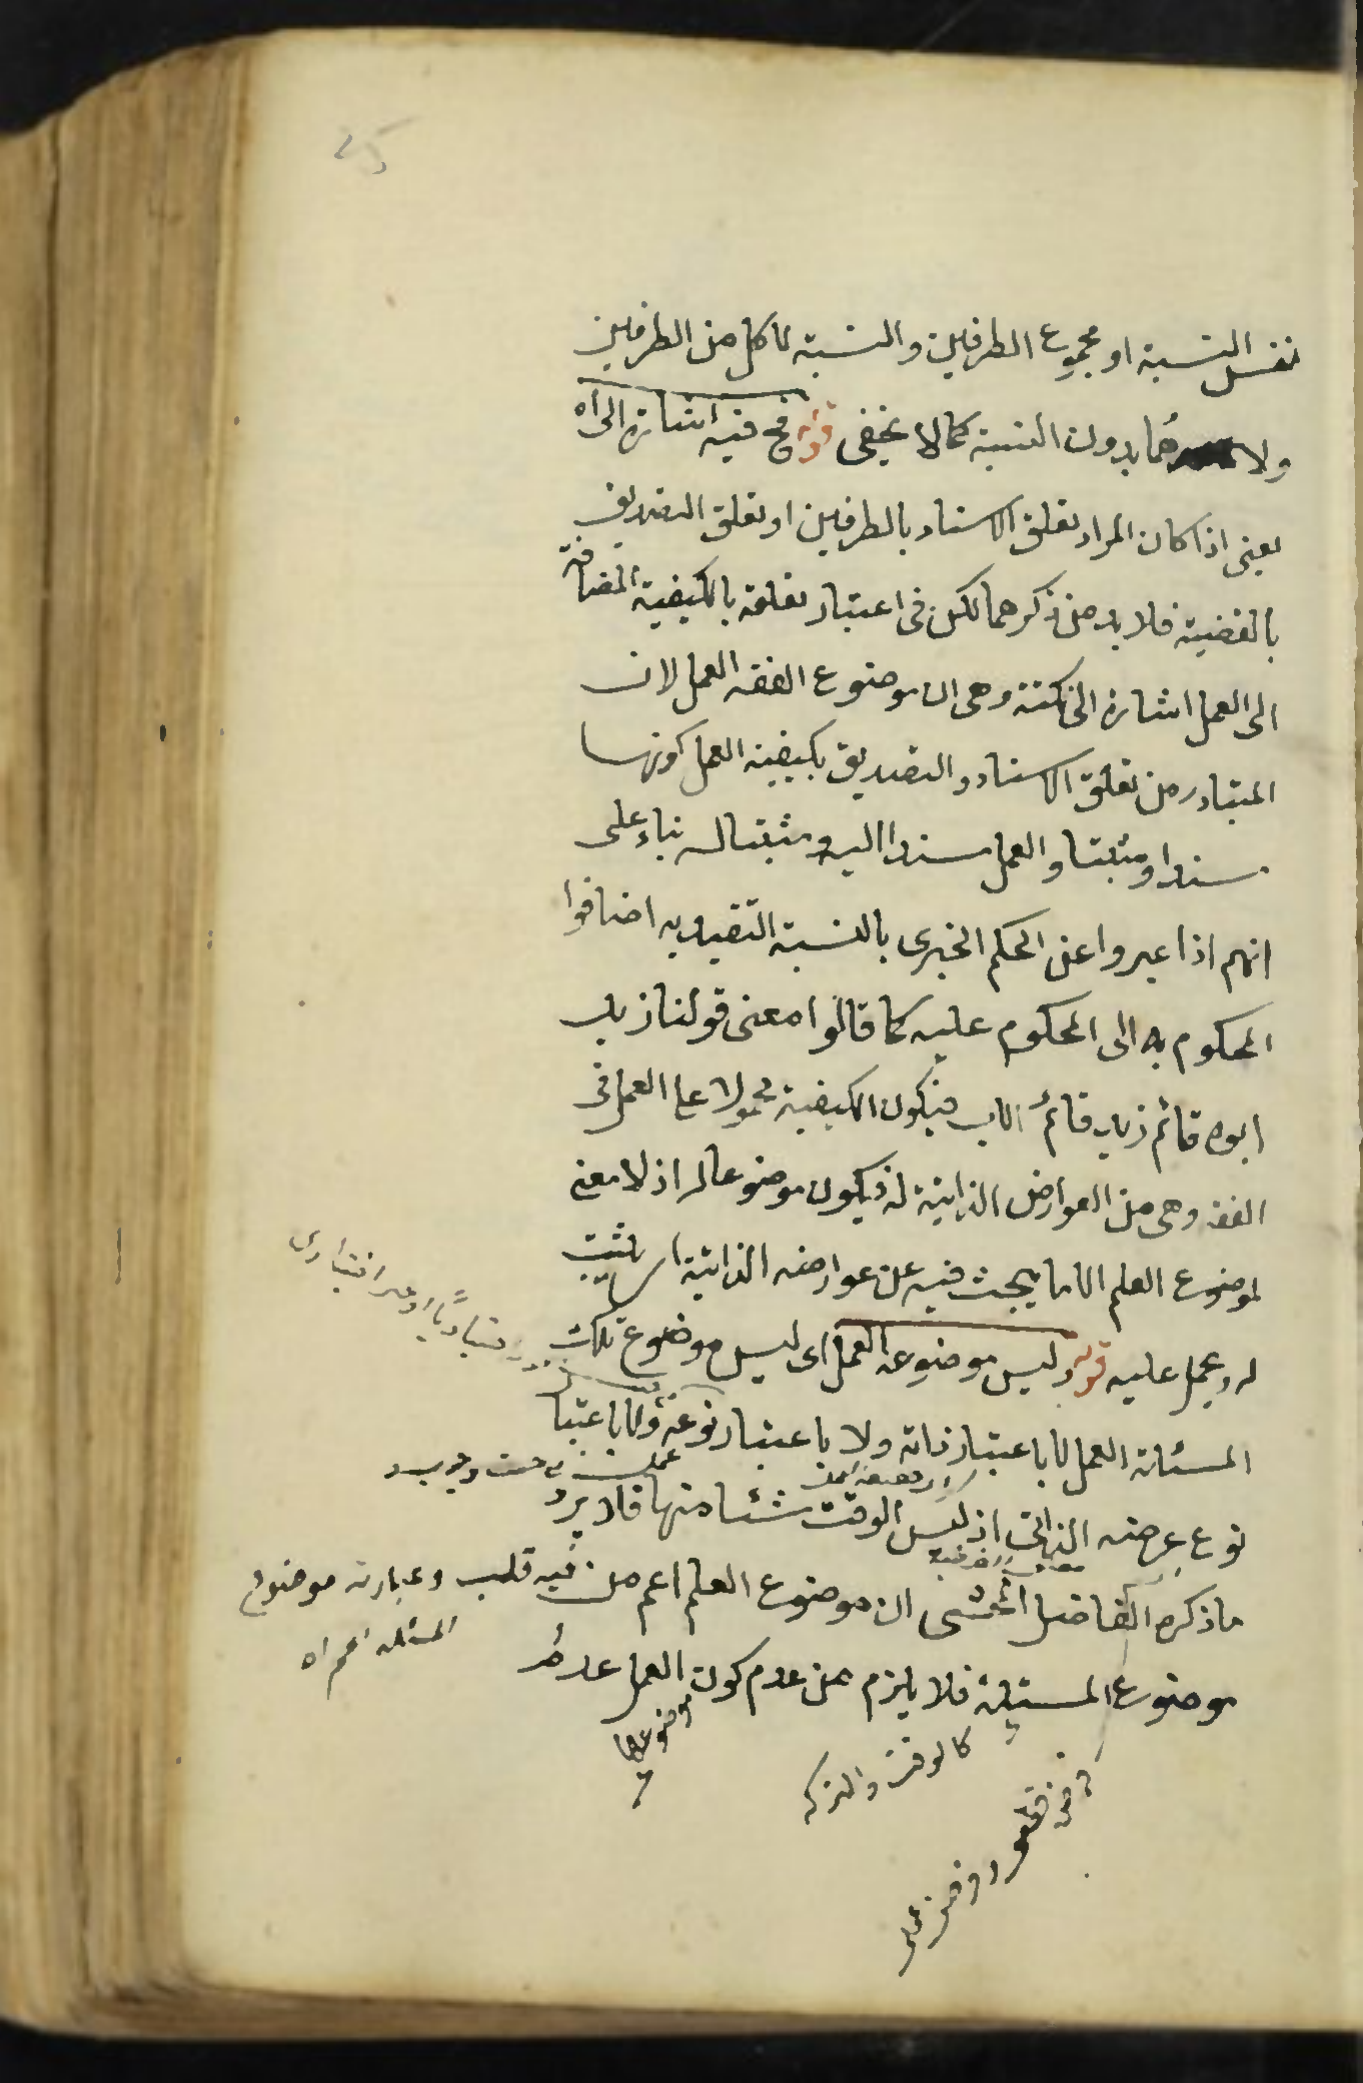 نفس النسبة او مجموع الطرفين والنسبة لا كل من الطرفين
ولا هما بدون النسبة كما لا يخفى قوله فح فيه اشارة الى اه
يعنى اذا كان المراد تعلق الاسناد بالطرفين او تعلق التصديق
بالقضية فلا بد من ذكرهما لكن فى اعتبار تعلقه بالكيفية المضافة
الى العمل اشارة الى نكتة وهى ان موضوع الفقه العمل لان
المتبادر من تعلق الاسناد والتصديق بكيفية العمل كونها
مسندا ومثبتا والعمل مسندا اليه ومثبتا له بناء على
انهم اذا عبروا عن الحكم الخبرى بالنسبة التقييدية اضافوا
المحكوم به الى المحكوم عليه كما قالوا معنى قولنا زيد
ابوه قائم زيد قائم الاب فيكون الكيفية محمولا على العمل فى
الفقه وهى من العوارض الذاتية له فيكون موضوعا له اذ لا معنى
لموضوع العلم الا ما يبحث فيه عن عوارضه الذاتية اى يثبت
له ويحمل عليه قوله وليس موضوعه العمل اى ليس موضوع تلك
المسئلة العمل لا باعتبار ذاته ولا باعتبار نوعه ولا باعتبا
نوع عرضه الذاتى اذ ليس الوقت شئا منها فلا يرد
ما ذكره الفاضل المحشى ان موضوع العلم اعم من
فيه قلب وعبارته موضوع
المسئلة اعم اه
موضوع المسئلة فلا يلزم من عدم كون العمل
موضوعها
كالوقت والتركة